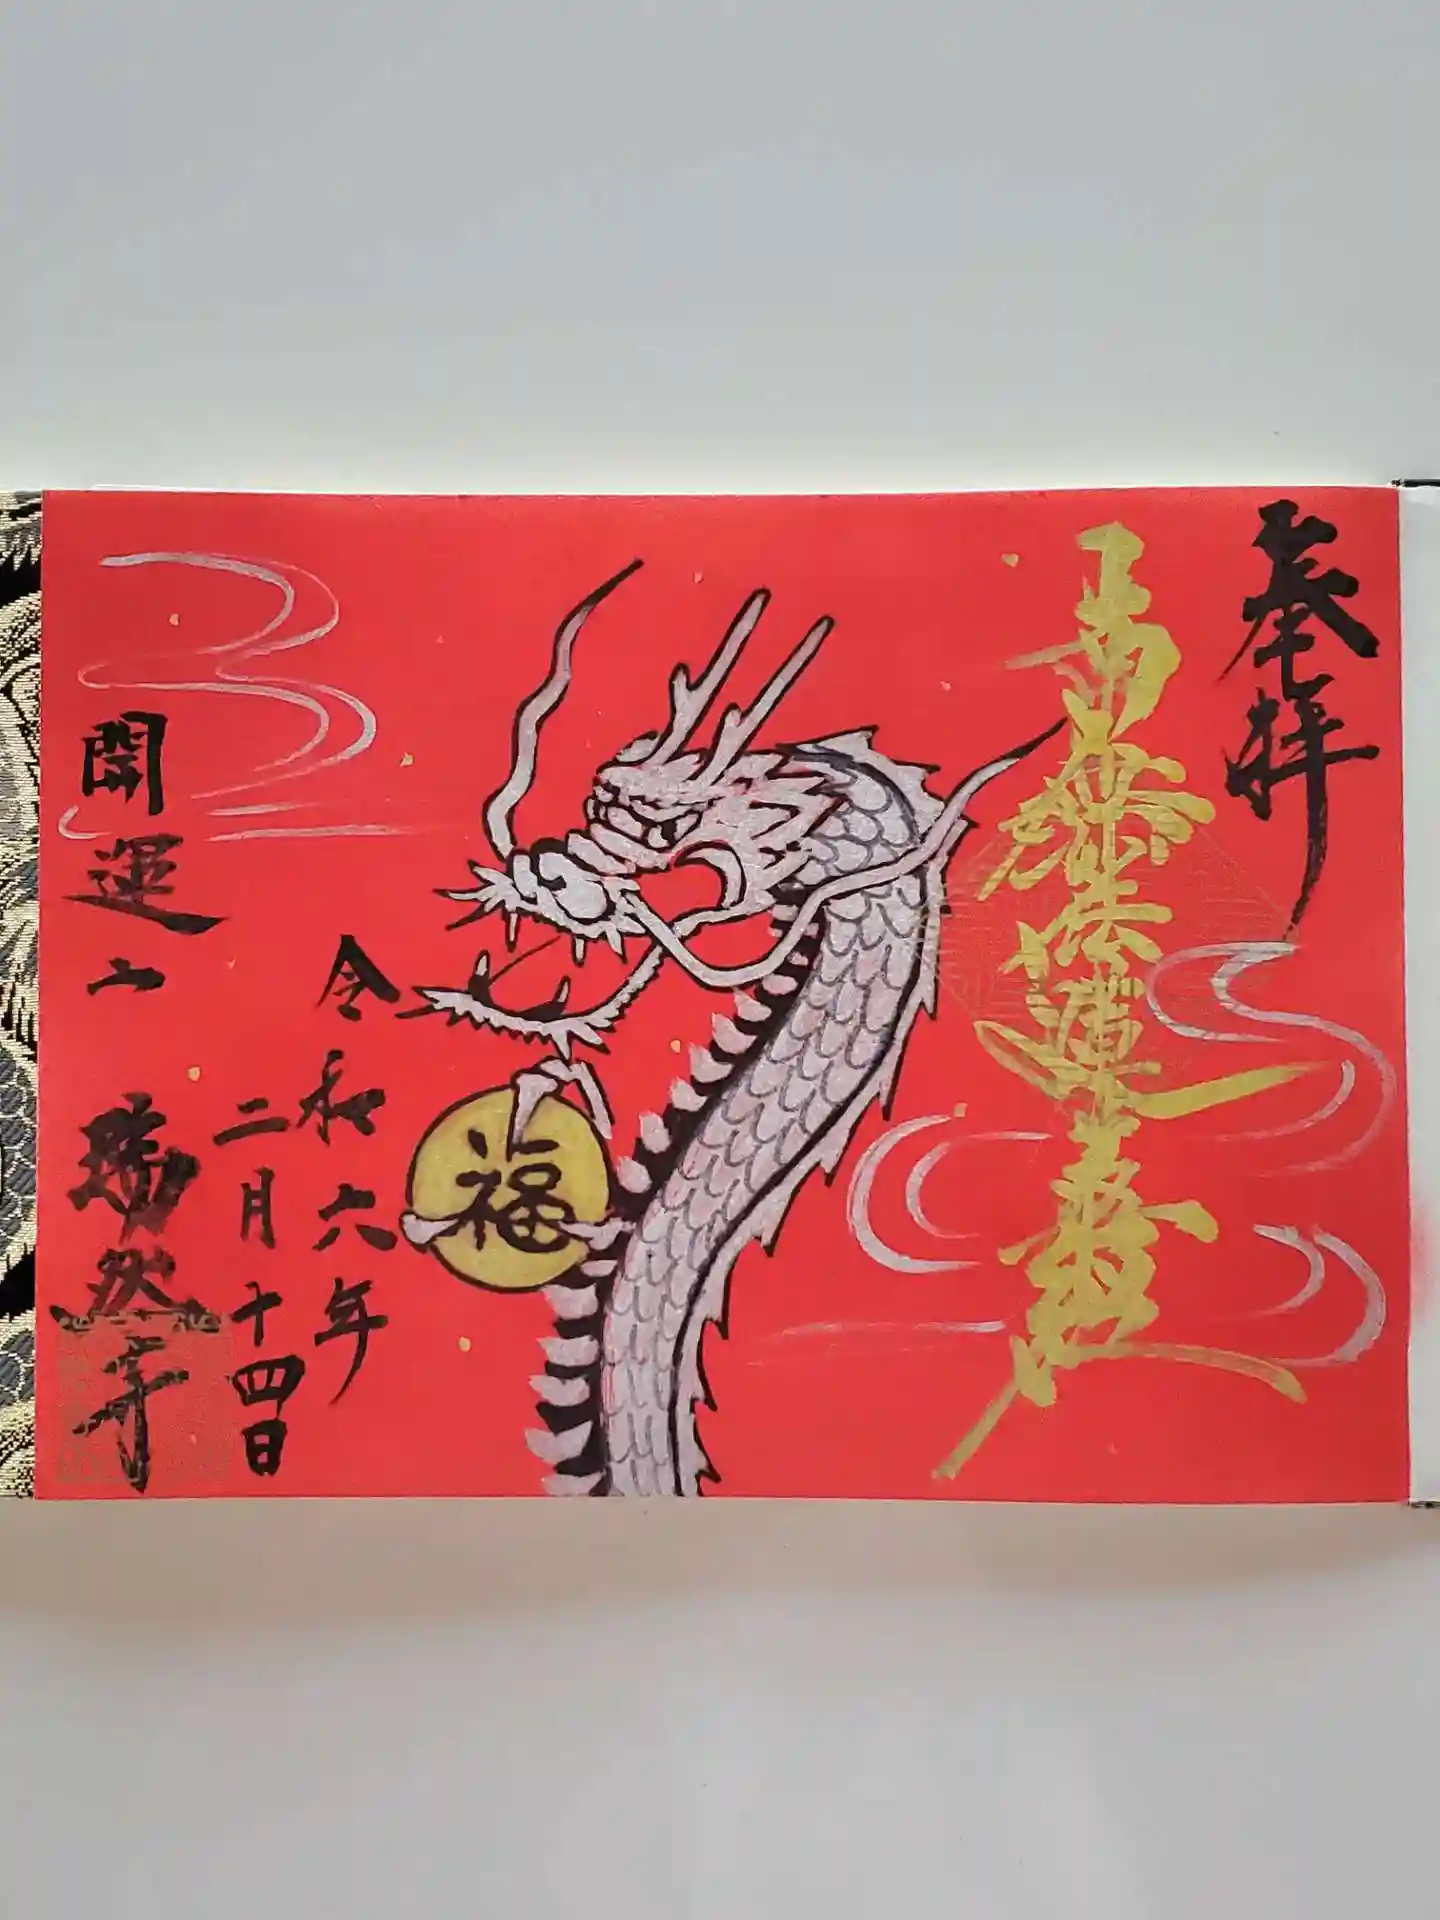 奉拝
南無妙法蓮華経
福
令和六年
二月十四日
開運山 瑞然寺